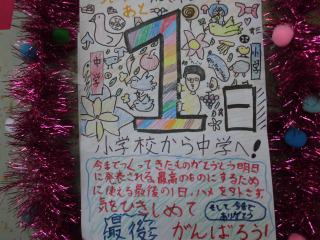 あと
1日
中学
小学
小学校から中学へ!
今までつくってきたものがとうとう明日
に発表される。最高のものにするため
に使える最後の1日。ハメをはずさず
気をひきしめて
そして今まで
ありがとう
最後
がんばろう!